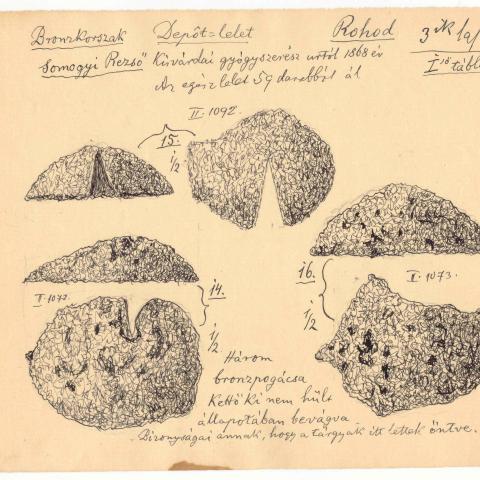 Bronzkorszak Depôt=lelet Rohod 3ik la
"Somogyi Rezső" Kisvárdai gyógyszerész urtól 1868 év I ső tábl
Az egész lelet 59 darabból ál
II. 1092.
15.
1/2
16.
II. 1073.
1/2
II. 1072.
14.
1/2
Három
bronzpogácsa
Kettő ki nem hült
állapotában bevágva
Bizonyságai annak, hogy a tárgyak itt lettek öntve.